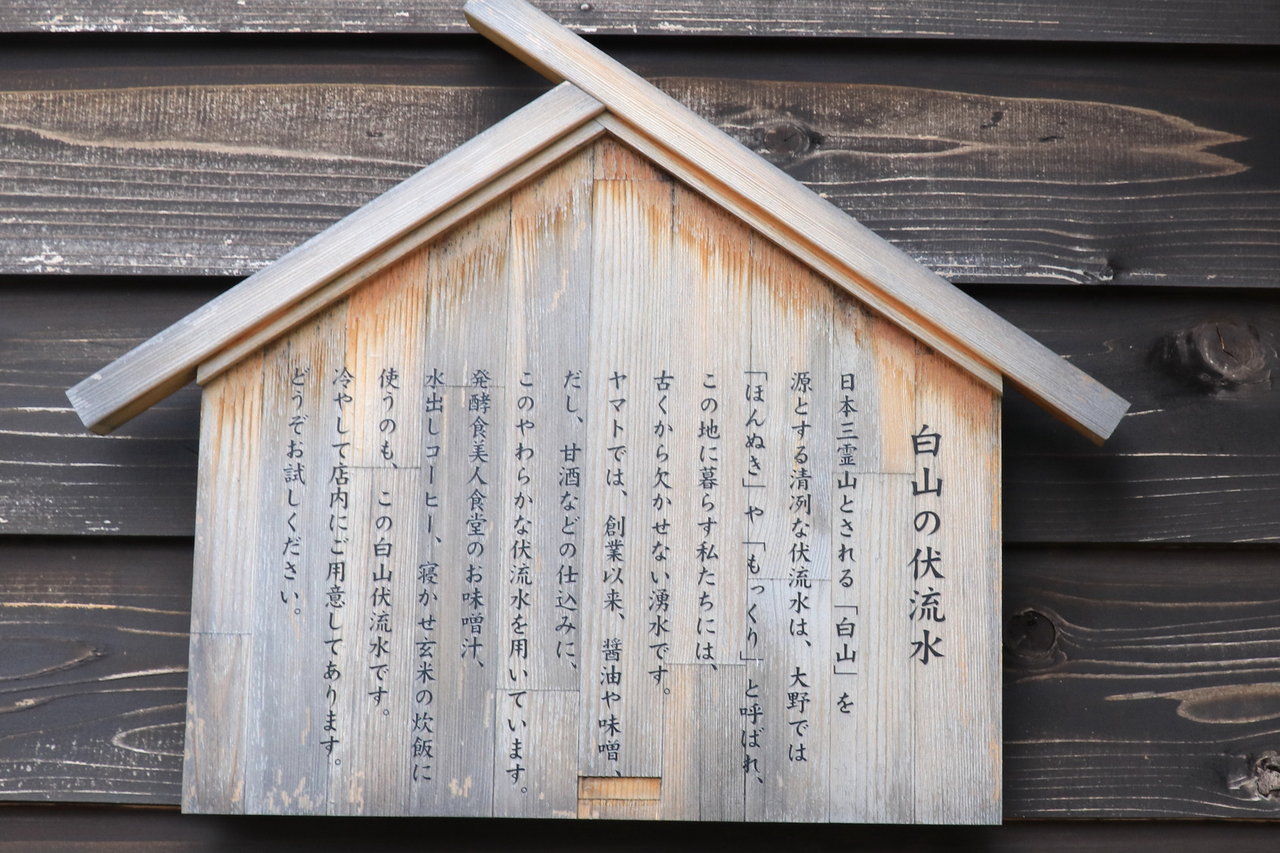 白山の伏流水
日本三霊山とされる「白山」を
源とする清冽な伏流水は、大野では
「ほんぬき」や「もっくり」と呼ばれ、
この地に暮らす私たちには、
古くから欠かせない湧水です。
ヤマトでは、創業以来、醤油や味噌、
だし、甘酒などの仕込みに、
このやわらかな伏流水を用いています。
発酵食美人食堂のお味噌汁、
水出しコーヒー、寝かせ玄米の炊飯に
使うのも、この白山伏流水です。
冷やして店内にご用意してあります。
どうぞお試しください。